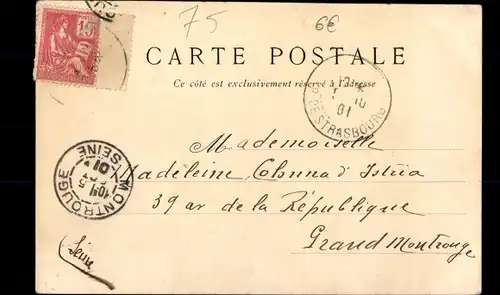 75
6€
15
CARTE POSTALE
Ce côté est exclusivement réservé à l'adresse
R. DE STRASBOURG
01
Mademoiselle
Madeleine Colonna d'Istria
MONTROUGE
SEINE
01
39 av de la République
Grand Montrouge
Seine